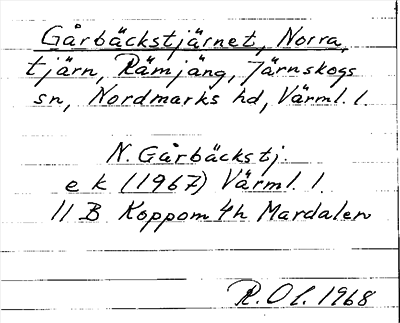 Gårbäckstjärnet, Norra,
tjärn, Rämjäng, Järnskogs
sn, Nordmarks hd, Värml. l.
N. Gårbäckstj.
e k (1967) Värml. l.
11 B Koppom 4h Mardalen
R. Ol. 1968